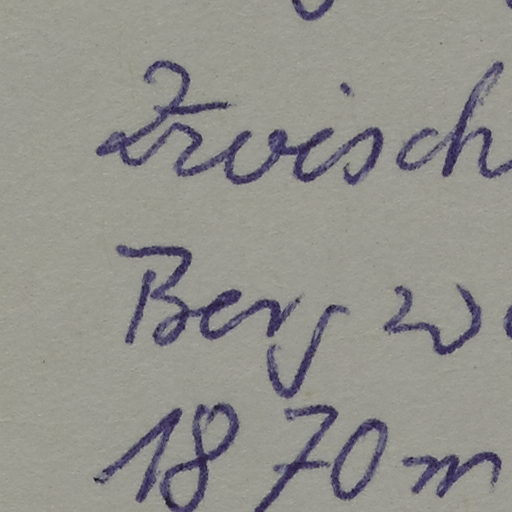 Zwisch
Berg w
1870 m